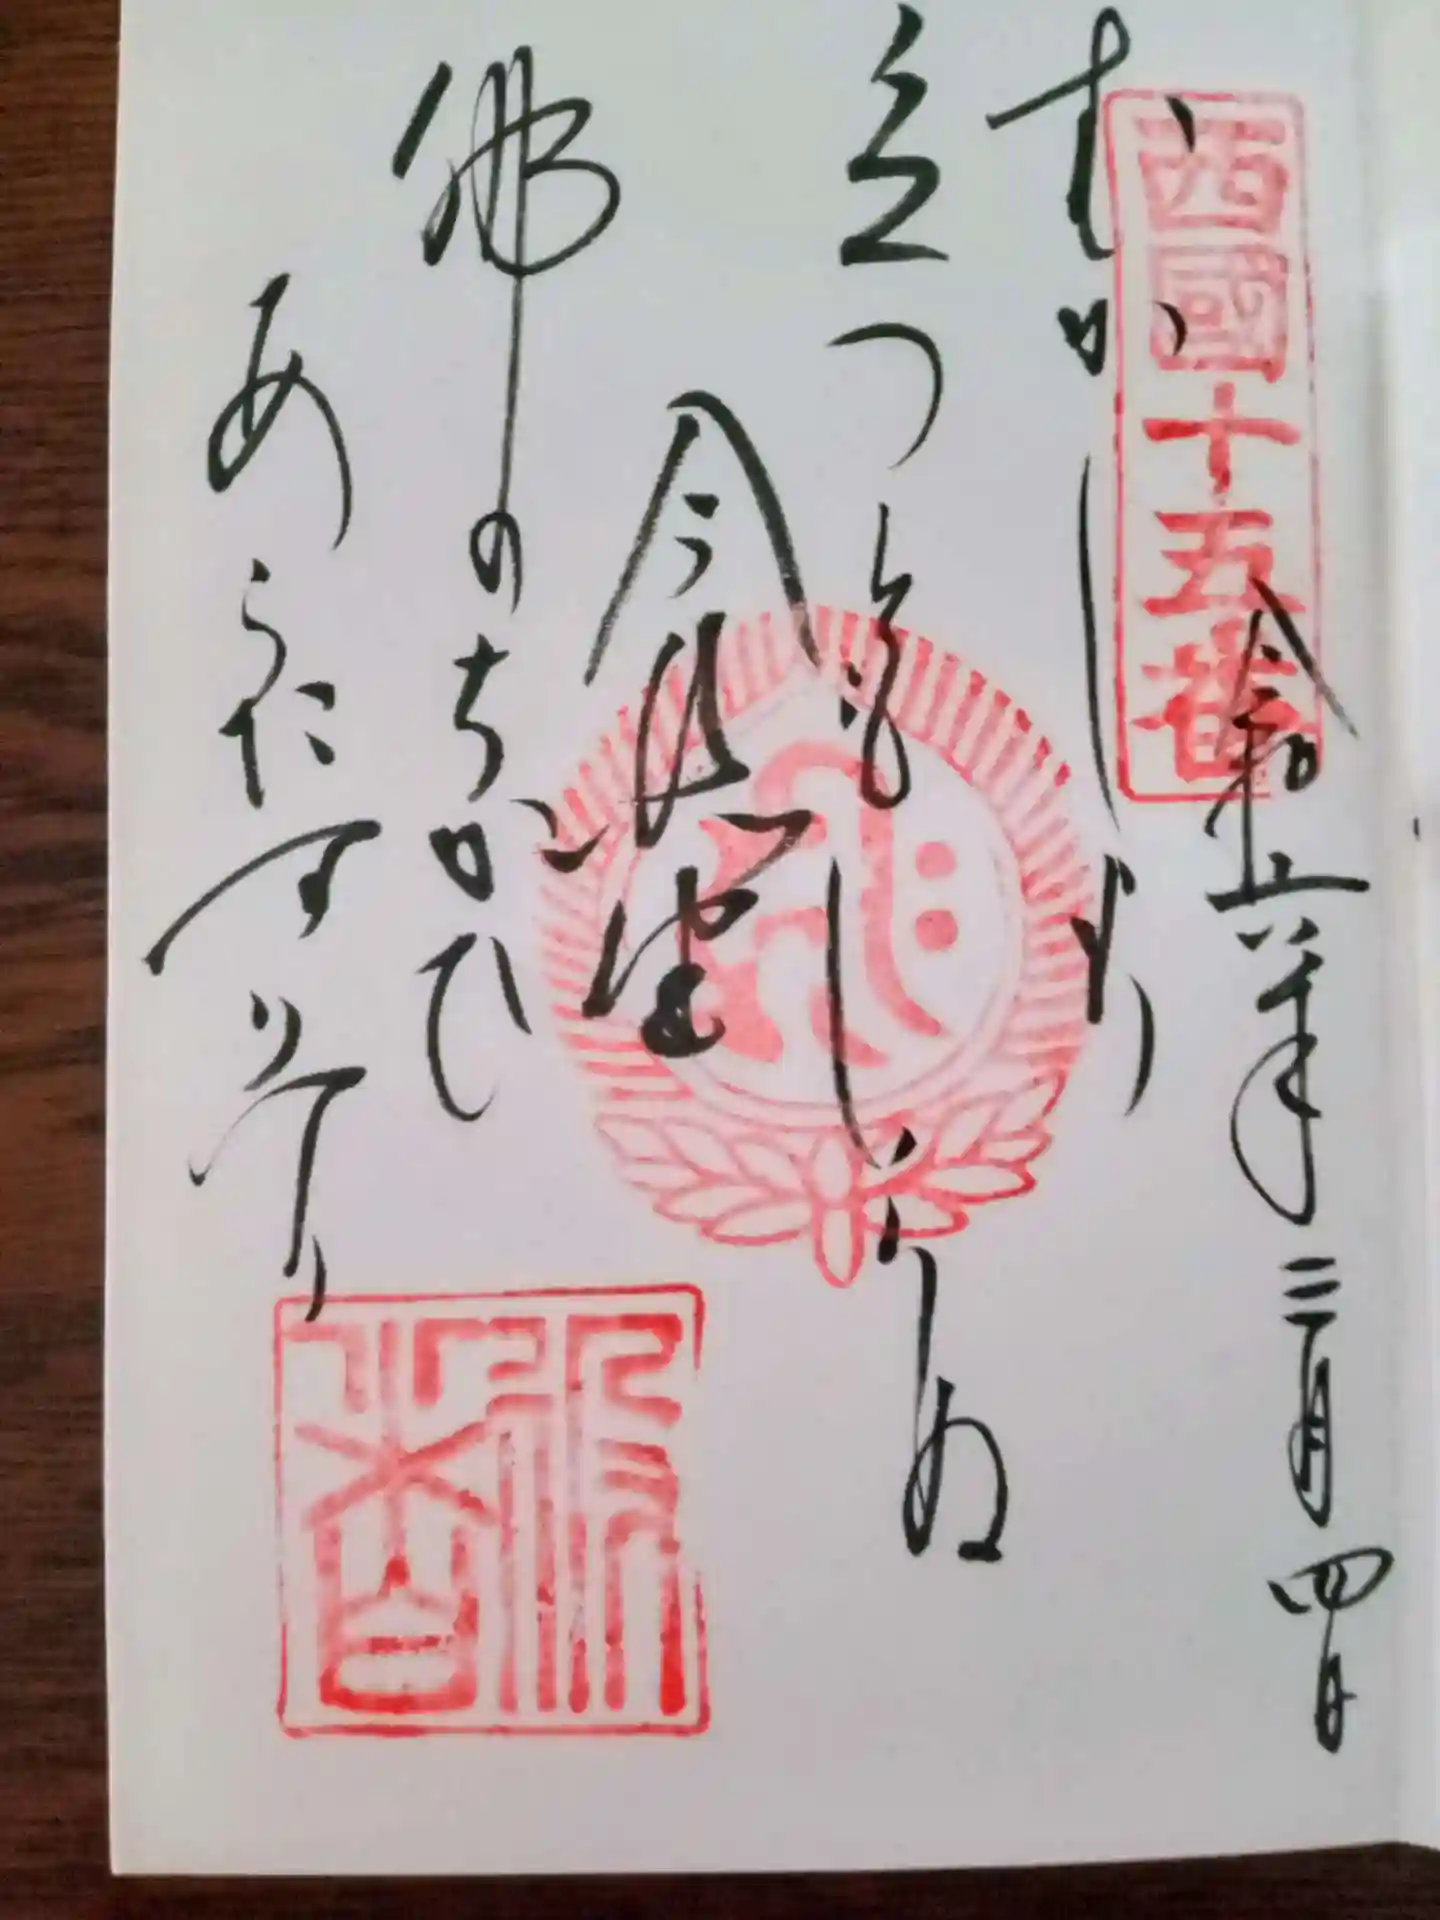 西國十五番
令和六年三月四日
むかしより
立つともしらぬ
今熊野
佛のちかひ
あらたなりけり